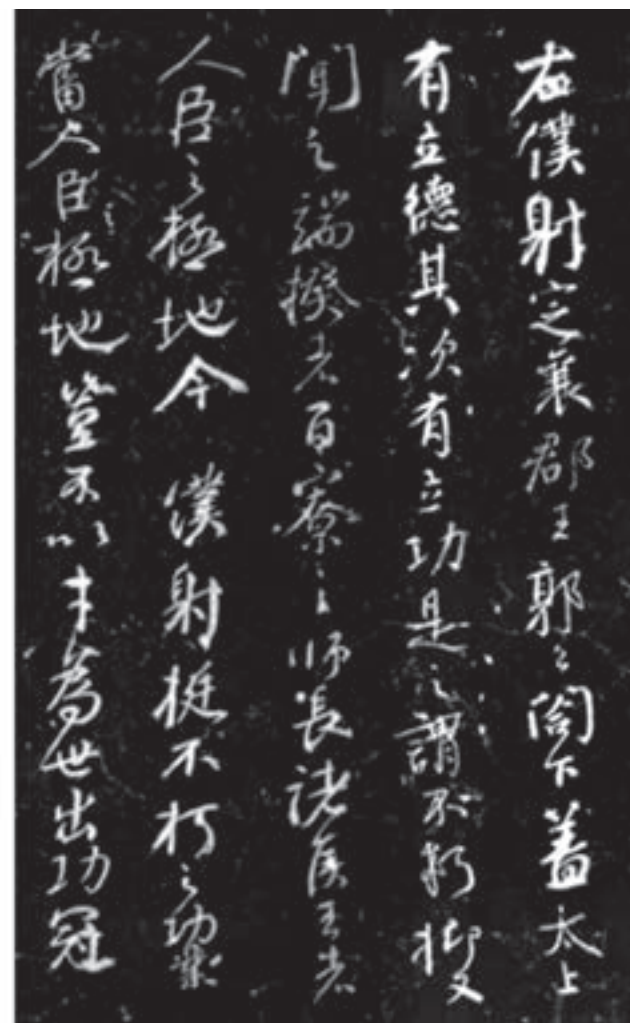 右僕射定襄郡王郭公閤下蓋太上
有立德其次有立功是之謂不朽抑又
聞之端揆者百寮之師長諸侯王者
人臣之極地今僕射挺不朽之功業
當人臣極地豈不以才為世出功冠